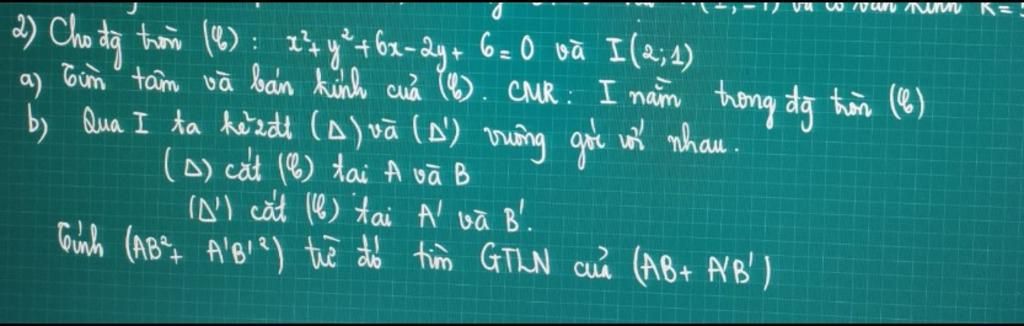 2) Cho đg tròn (C): x²+ y²+6x-2y+ 6=0 và I(2;1)
a) Tìm tâm và bán kính của (C). CMR: I nằm trong đg tròn (C)
b) Qua I ta kẻ 2đt (Δ) và (Δ') vuông góc với nhau.
(Δ) cắt (C) tại A và B
(Δ') cắt (C) tại A' và B'.
Tính (AB²+ A'B'²) từ đó tìm GTLN của (AB+ A'B')